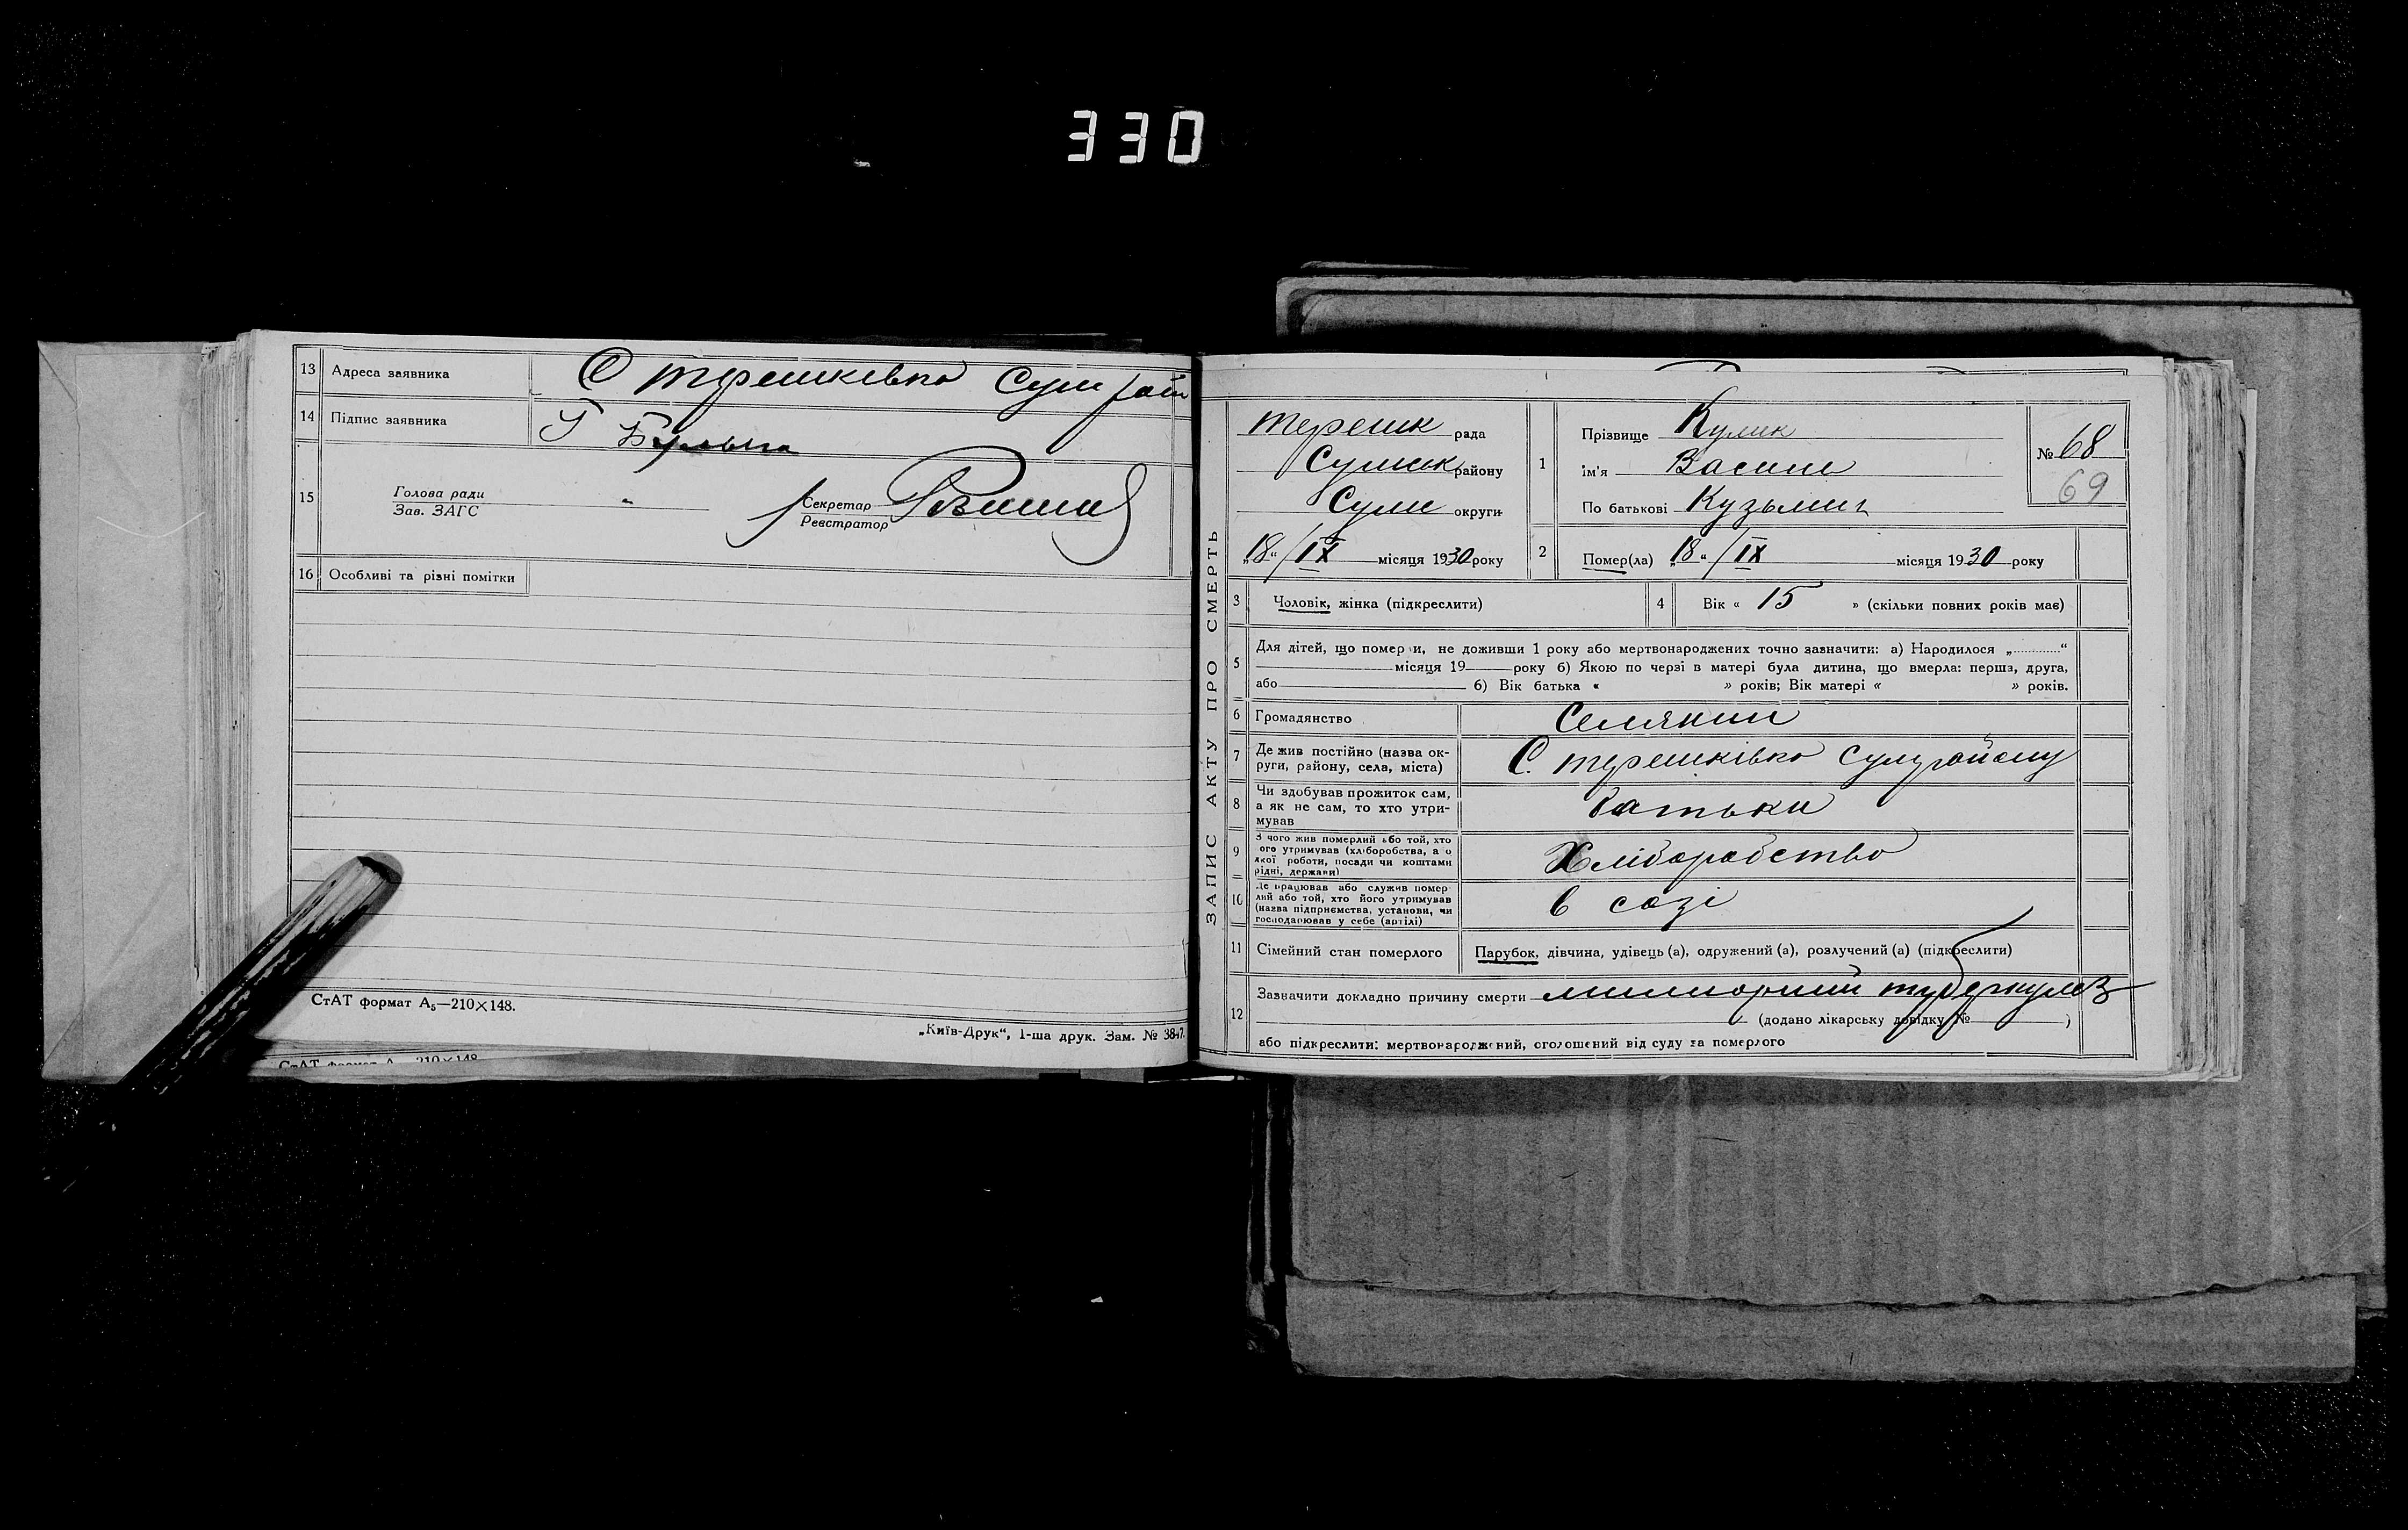 330
13 Адреса заявника С терешківка Сум рай
14 Підпис заявника
15 Голова ради Зав. ЗАГС " Секретар Реєстратор
16 Особливі та різні помітки
СтАТ формат А₅—210×148.
„Київ-Друк“, 1-ша друк. Зам. № 3847.
СтАТ формат А 210×148
ЗАПИС АКТУ ПРО СМЕРТЬ
терешк рада
Сумськ району
Суми округи
„18“/IX місяця 1930 року
1 Прізвище Кулик
ім'я Васили
По батькові Кузьмич
№ 68
69
2 Помер(ла) „18“/IX місяця 1930 року
3 Чоловік, жінка (підкреслити)
4 Вік « 15 » (скільки повних років має)
5 Для дітей, що померли, не доживши 1 року або мертвонароджених точно зазначити: а) Народилося „............“
місяця 19 року б) Якою по черзі в матері була дитина, що вмерла: перша, друга,
або б) Вік батька « » років; Вік матері « » років.
6 Громадянство Селянин
7 Де жив постійно (назва ок-
руги, району, села, міста) С. терешківка Сумрайону
8 Чи здобував прожиток сам,
а як не сам, то хто утри-
мував батьки
9 З чого жив померлий або той, хто
ого утримував (хліборобства, а о
якої роботи, посади чи коштами
рідні, держави) Хліборобство
10 Де працював або служив помер
лий або той, хто його утримував
(назва підприємства, установи, чи
господарював у себе (артілі) в созі
11 Сімейний стан померлого Парубок, дівчина, удівець (а), одружений (а), розлучений (а) (підкреслити)
12 Зазначити докладно причину смерти милиорний туберкулез
(додано лікарську довідку № )
або підкреслити: мертвонароджений, оголошений від суду за померлого